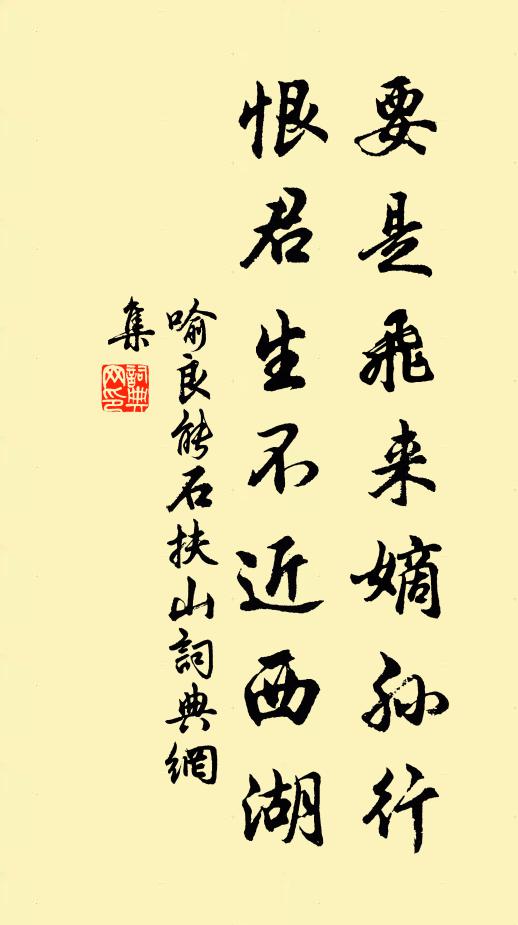 要是飛来嫡孙行
恨君生不近西湖
喻良能石扶山詞典網
集
詞典网印